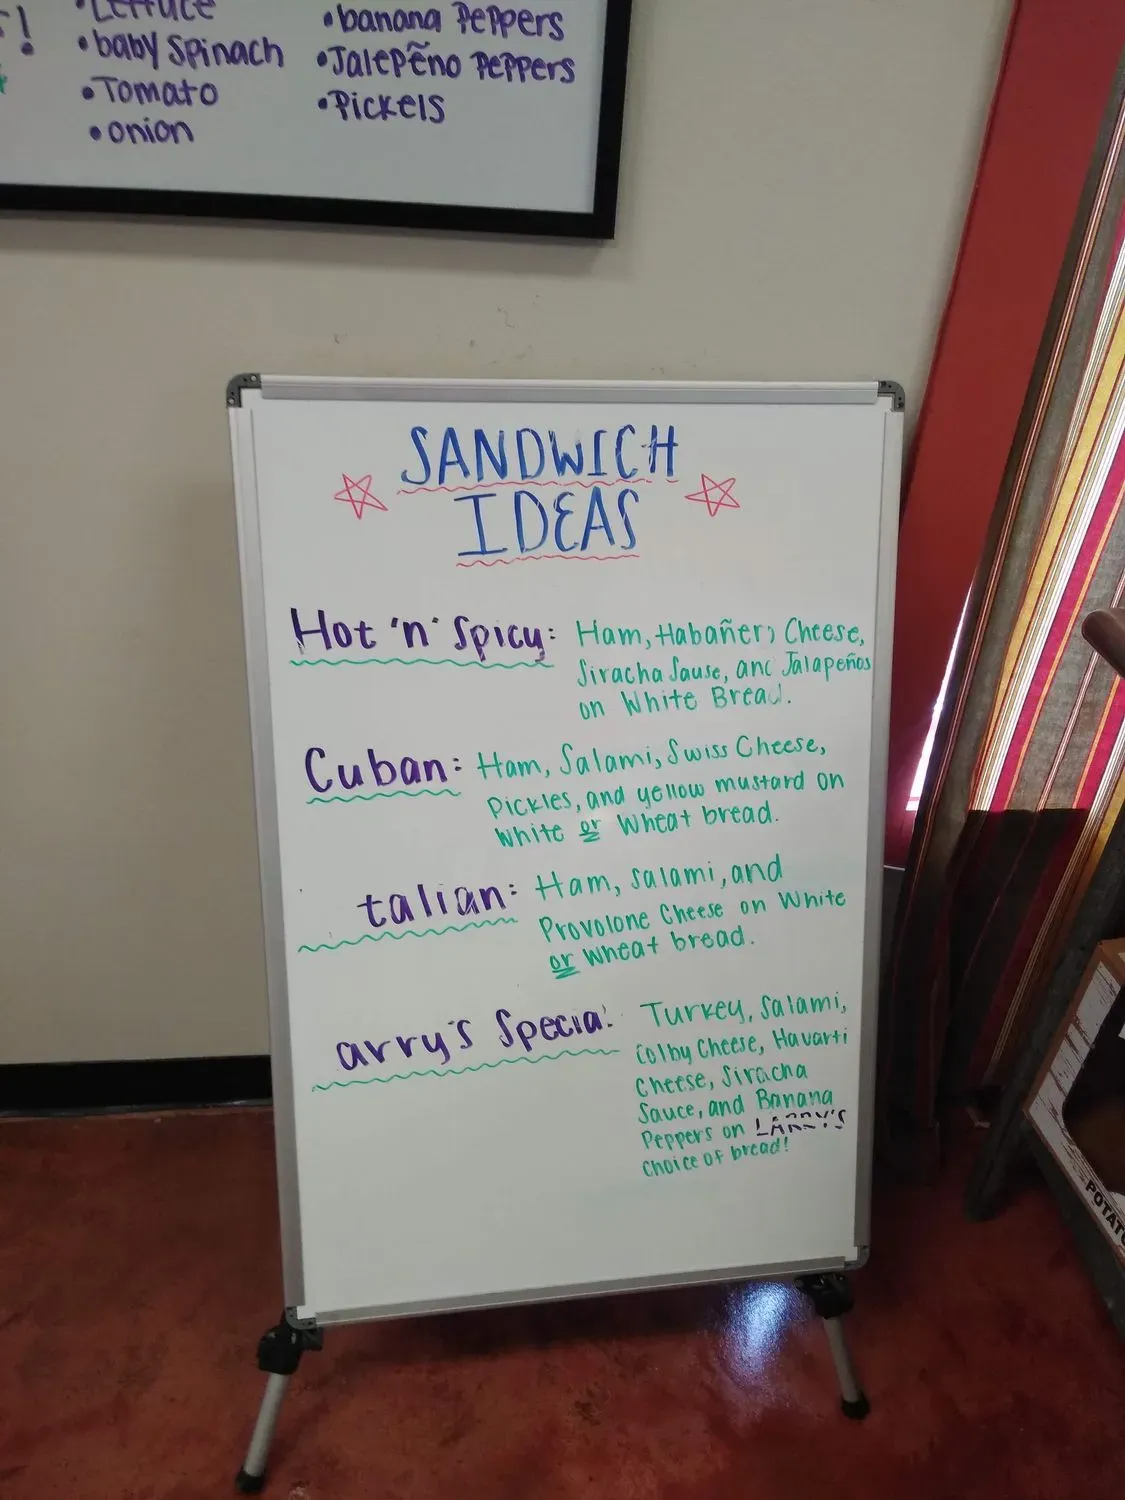 • Lettuce
• baby spinach
• Tomato
• onion
• banana Peppers
• Jalepẽno Peppers
• Pickels
SANDWICH
IDEAS
Hot 'n' Spicy: Ham, Habañero Cheese,
Siracha Sause, and Jalapeños
on White Bread.
Cuban: Ham, Salami, Swiss Cheese,
Pickles, and yellow mustard on
White or Wheat bread.
talian: Ham, salami, and
Provolone Cheese on White
or Wheat bread.
arry's Special: Turkey, Salami,
Colby Cheese, Havarti
Cheese, Siracha
Sauce, and Banana
Peppers on LARRY'S
choice of bread!
POTATO